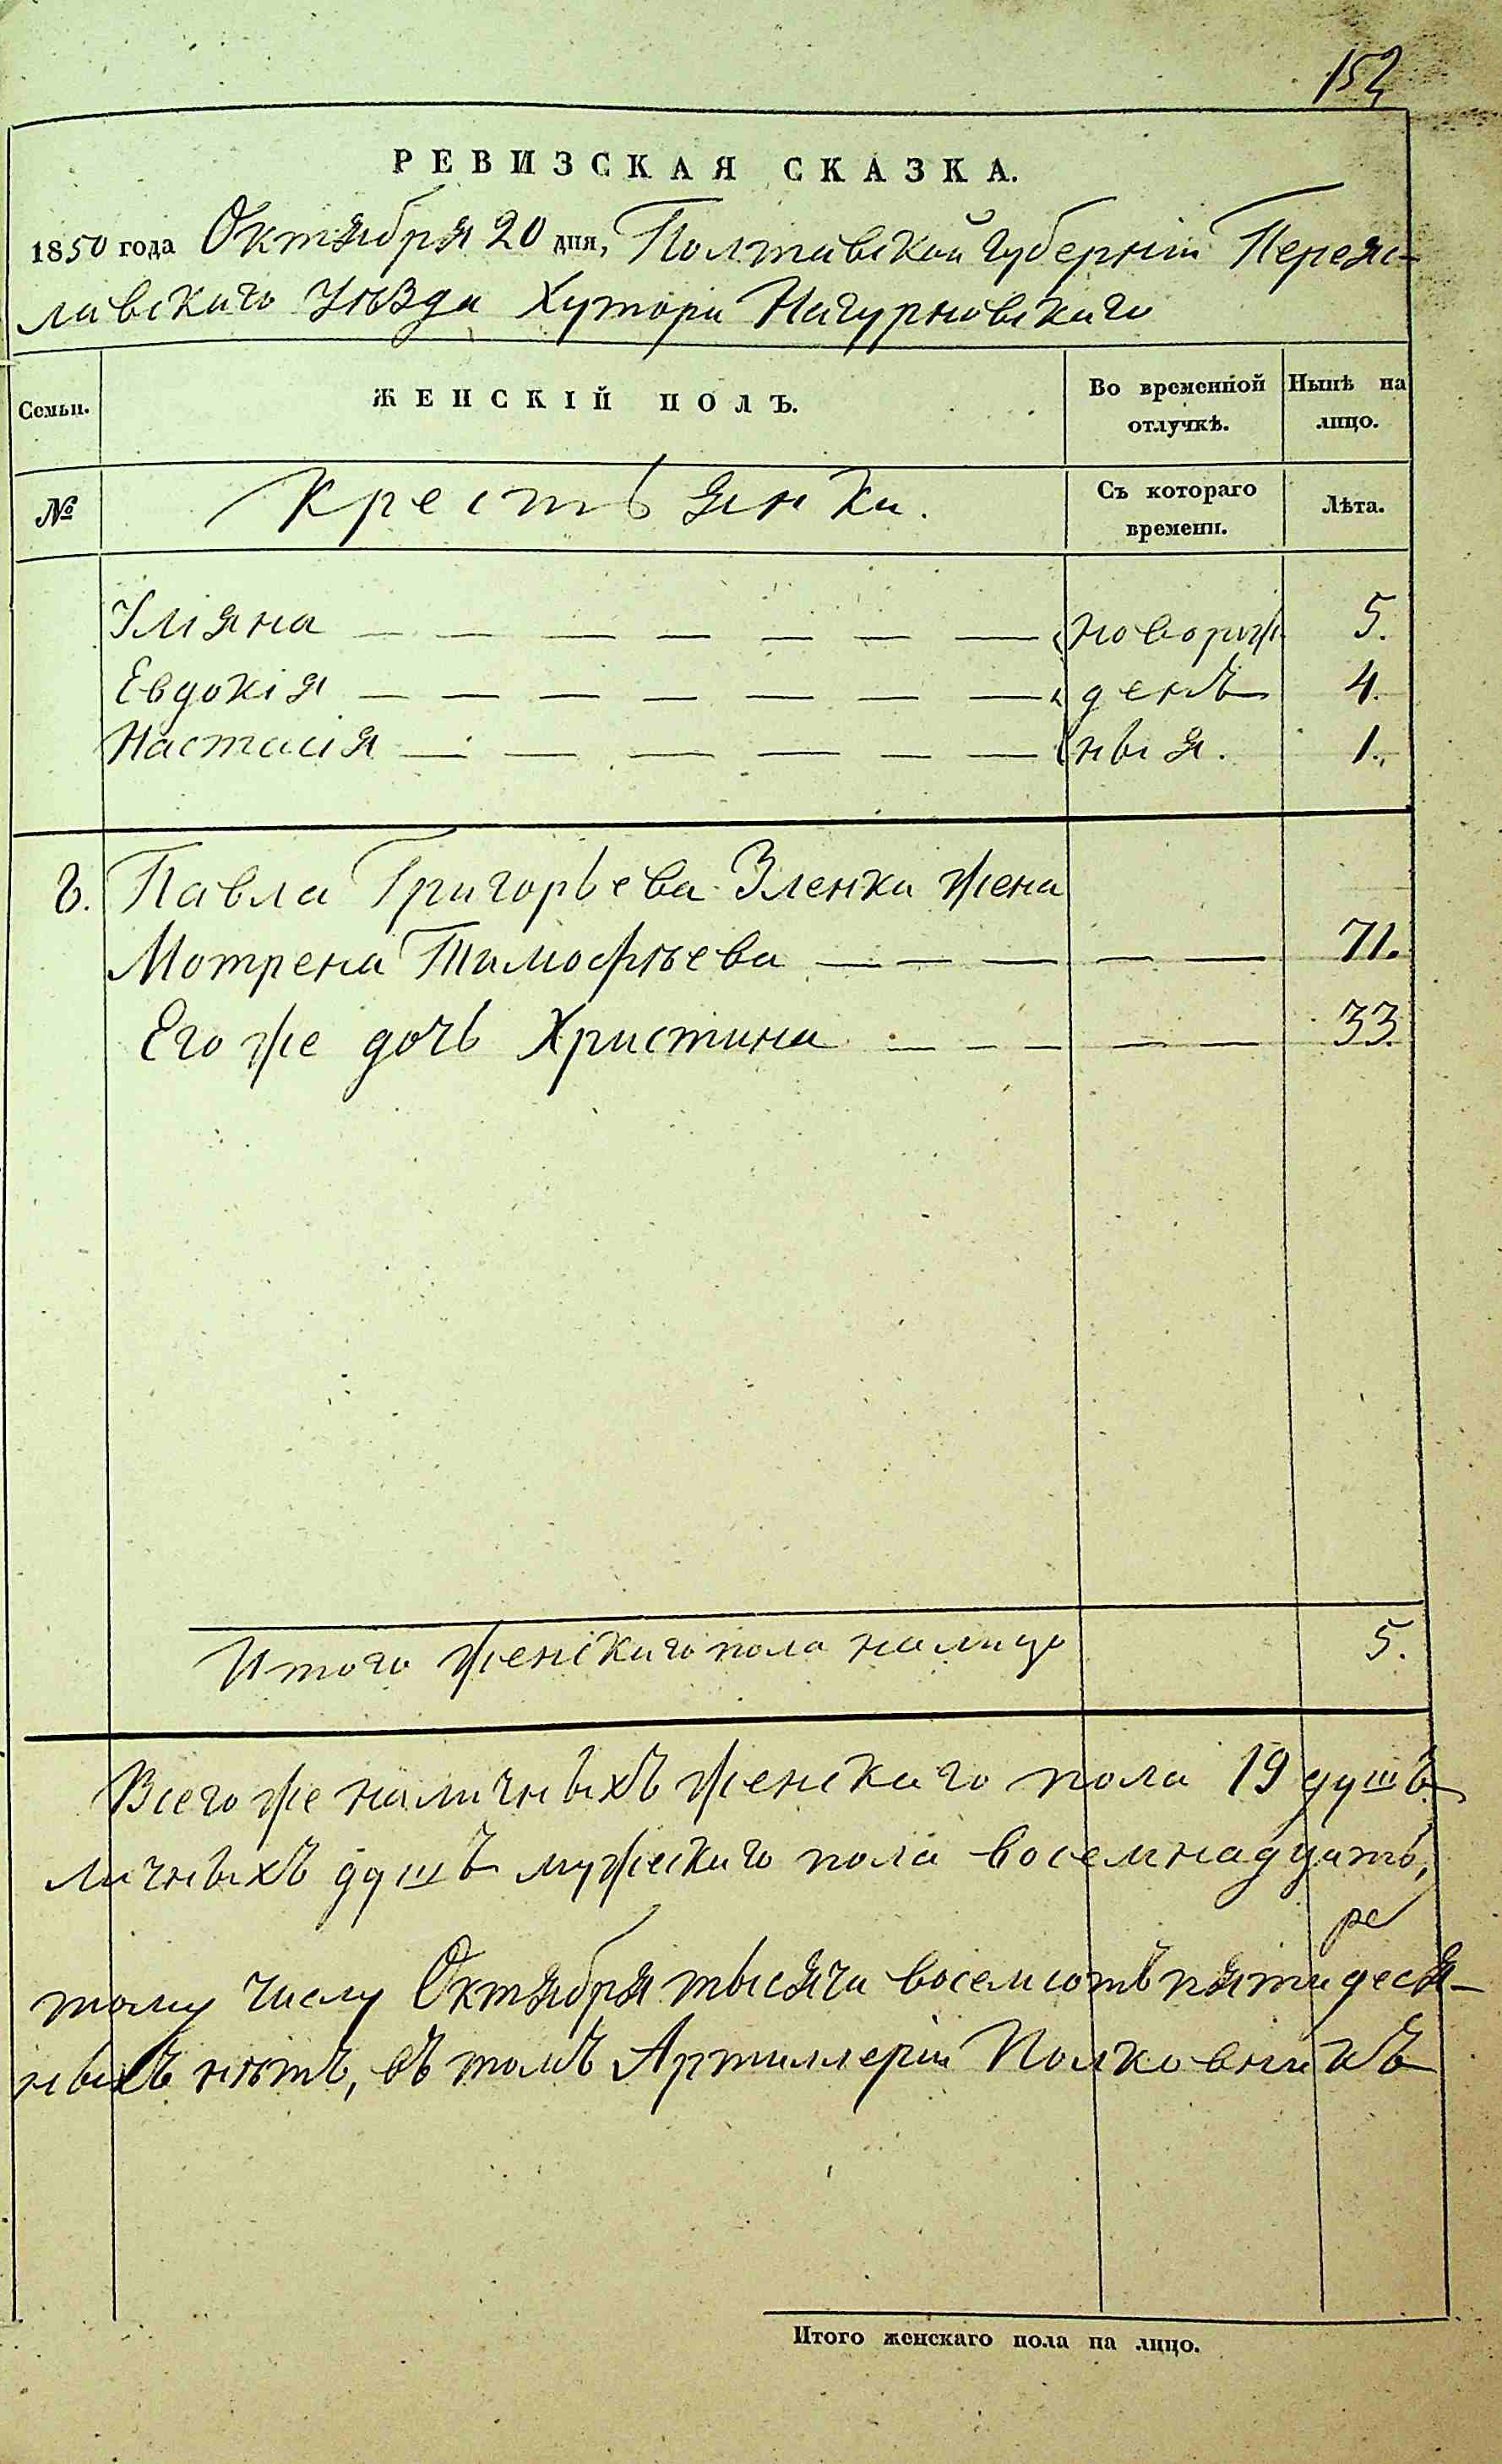 152
РЕВИЗСКАЯ СКАЗКА.
1850 года Октября 20 дня, Полтавской Губерніи Переяс-
лавскаго Уѣзда Хутора Нагурновскаго
Семьи.
ЖЕНСКІЙ ПОЛЪ.
Во временной отлучкѣ.
Нынѣ на лицо.
№
Крестьянки.
Съ котораго времени.
Лѣта.
Уліяна — — — — — — — новорож 5.
Евдокія — — — — — — — денъ 4.
Настасія — — — — — — ныя. 1.
8. Павла Григорьева Зленка жена
Мотрена Тимофѣева — — — — — 71.
Его же дочь Христина — — — — — 33.
Итого женскаго пола налицо 5.
Всего же наличныхъ женскаго пола 19 душъ
личныхъ душъ мужескаго пола восемнадцать,
ре
тому числу Октября тысяча восемсотъ пятидеся-
ныхъ нѣтъ, въ томъ Артиллеріи Полковникъ
Итого женскаго пола на лицо.